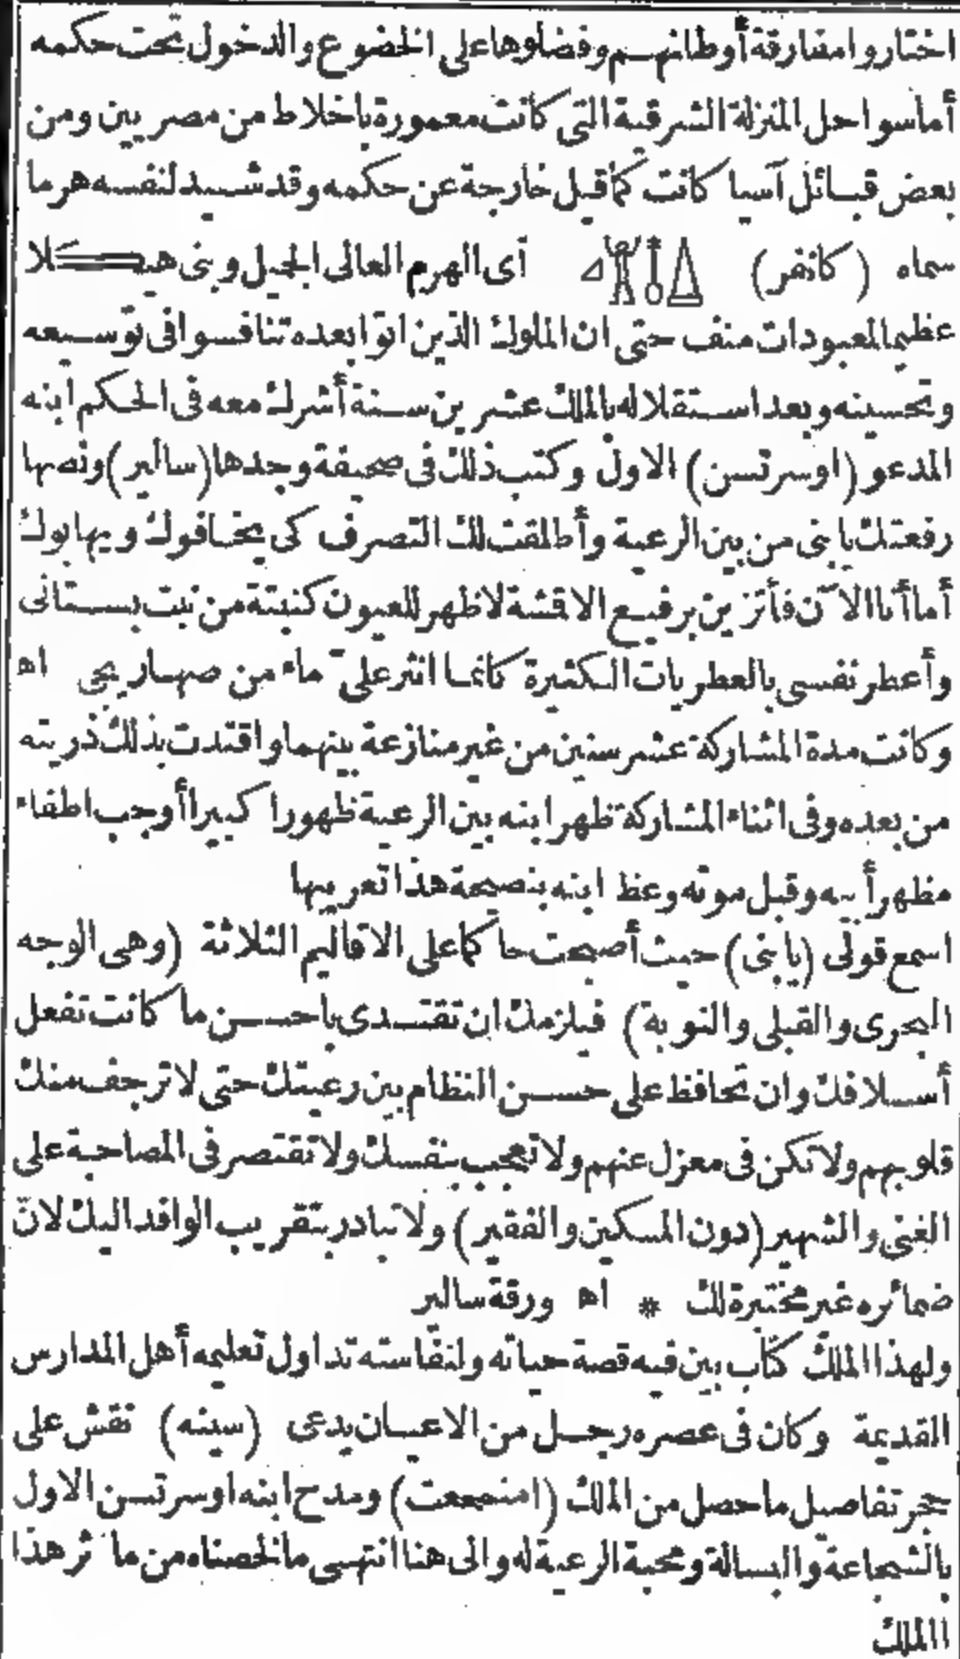 اختاروا مفارقة أوطانهم وفضلوها على الخضوع والدخول تحت حكمه
أما سواحل المنزلة الشرقية التى كانت معمورة باخلاط من مصريين ومن
بعض قبائل آسيا كانت كما قيل خارجة عن حكمه وقد شيد لنفسه هرما
سماه (كانفر) أى الهرم العالى الجيل وبنى هيكلا
عظيما لمعبودات منف حتى ان الملوك الذين اتوا بعده تنافسوا فى توسيعه
وتحسينه وبعد استقلاله بالملك عشرين سنة أشرك معه فى الحكم ابنه
المدعو (اوسرتسن) الاول وكتب ذلك فى صحيفة وجدها (سالير) ونصها
رفعتك يابنى من بين الرعية وأطلقت لك التصرف كى يخافوك ويهابوك
أما أنا الآن فأتزين برفيع الاقشة لاظهر للعيون كنبتة من نبت بستانى
وأعطر نفسى بالعطريات الكثيرة كانما انثر علىّ ماء من صهاريجى اه
وكانت مدة المشاركة عشر سنين من غير منازعة بينهما واقتدت بذلك ذريته
من بعده وفى اثناء المشاركة ظهر ابنه بين الرعية ظهورا كبيرا أوجب اطفاء
مظهر أبيه وقبل موته وعظ ابنه بنصيحة هذا تعريبها
اسمع قولى (يابنى) حيث أصبحت حاكما على الاقاليم الثلاثة (وهى الوجه
البحرى والقبلى والنوبة) فيلزمك ان تقتدى باحسن ما كانت تفعل
أسلافك وان تحافظ على حسن النظام بين رعيتك حتى لا ترجف منك
قلوبهم ولا تكن فى معزل عنهم ولا تعجب بنفسك ولا تقتصر فى المصاحبة على
الغنى والشهير (دون المسكين والفقير) ولا تبادر بتقريب الوافد اليك لانّ
ضمائره غير مختبرة لك * اه ورقة سالير
ولهذا الملك كتاب بين فيه قصة حياته ولنفاسته تداول تعليمه أهل المدارس
القديمة وكان فى عصره رجل من الاعيان يدعى (سينه) نقش على
حجر تفاصيل ما حصل من الملك (امنمحعت) ومدح ابنه اوسرتسن الاول
بالشجاعة والبسالة ومحبة الرعية له والى هنا انتهى ما لخصناه من مآثر هذا
الملك